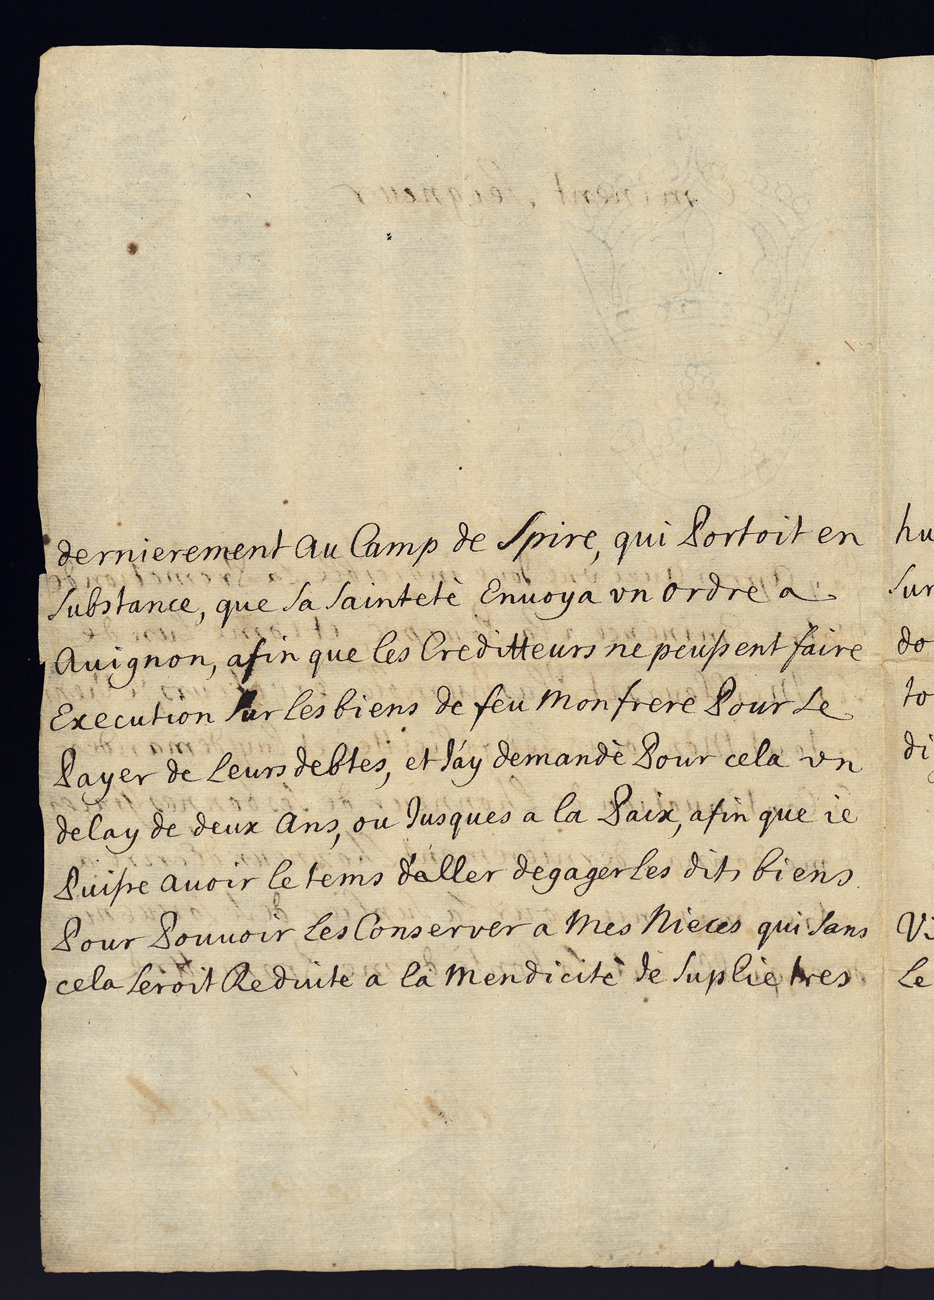 dernierement Au Camp de Spire, qui Portoit en
Substance, que Sa Saintetè Enuoya vn Ordre a
Auignon, afin que les Creditteurs ne peussent faire
Execution Sur les biens de feu Mon frere Pour Le
Payer de Leurs debtes, et J'ay demandè Pour cela vn
delay de deux Ans, ou Jusques a la Paix, afin que ie
Puisse Auoir le tems d'aller degager les dits biens
Pour Pouuoir Les Conserver a Mes Nieces qui Sans
cela Seroit Reduite a la Mendicitè Je Suplie tres
hu
Sur
do
to
di
Vi
Le
Eminent Seigneur